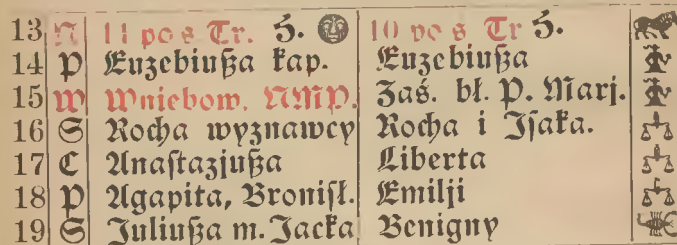 13 N 11 po ś. Tr. Ś. 10 po ś Tr Ś.
14 P Euzebiuſza kap. Euzebiuſza
15 W Wniebow. NMP. Zaś. bł. P. Marj.
16 S Rocha wyznawcy Rocha i Jſaka.
17 C Anaſtazjuſza Liberta
18 P Agapita, Broniſł. Emilji
19 S Juliuſza m. Jacka Benigny